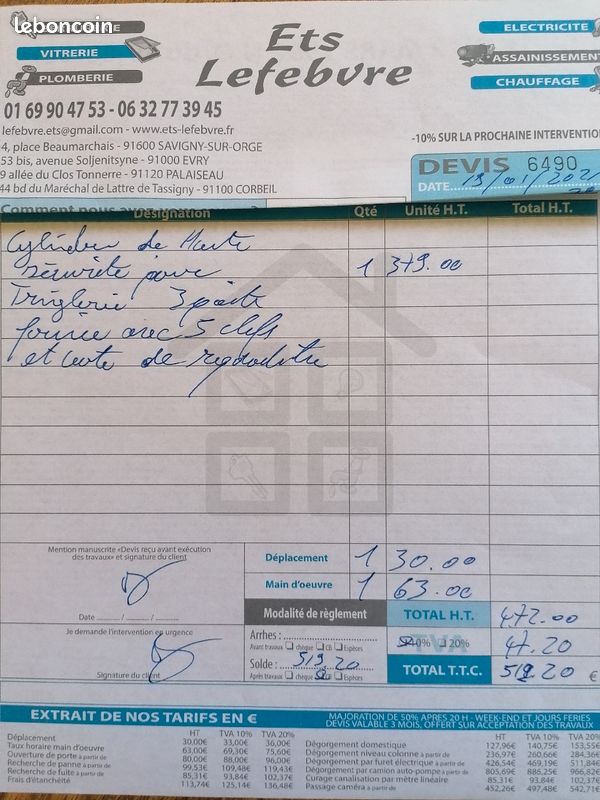 leboncoin
VITRERIE
PLOMBERIE
Ets
Lefebvre
ELECTRICITE
ASSAINISSEMENT
CHAUFFAGE
01 69 90 47 53 - 06 32 77 39 45
lefebvre.ets@gmail.com - www.ets-lefebvre.fr
4, place Beaumarchais - 91600 SAVIGNY-SUR-ORGE
53 bis, avenue Soljenitsyne - 91000 EVRY
9 allée du Clos Tonnerre - 91120 PALAISEAU
44 bd du Maréchal de Lattre de Tassigny - 91100 CORBEIL
-10% SUR LA PROCHAINE INTERVENTION
DEVIS 6490
DATE 19/01/2021
Comment nous avez
Désignation Qté Unité H.T. Total H.T.
Cylindre de Haute
sécurité pour 1 379.00
Tringlerie 3 points
fournie avec 5 clefs
et carte de reproduction
Mention manuscrite «Devis reçu avant exécution
des travaux» et signature du client
Date ....... / ....... / .......
Je demande l'intervention en urgence
Signature du client
Déplacement 1 30.00
Main d'oeuvre 1 63.00
Modalité de règlement TOTAL H.T. 472.00
Arrhes :
Avant travaux chèque CB Espèces
TVA 10% 20% 47.20
Solde : 519.20
Après travaux chèque CB Espèces
TOTAL T.T.C. 519.20 €
EXTRAIT DE NOS TARIFS EN €
MAJORATION DE 50% APRES 20 H - WEEK-END ET JOURS FERIES
DEVIS VALABLE 3 MOIS, OFFERT SUR ACCEPTATION DES TRAVAUX
HT TVA 10% TVA 20%
Déplacement 30,00€ 33,00€ 36,00€
Taux horaire main d'oeuvre 63,00€ 69,30€ 75,60€
Ouverture de porte à partir de 80,00€ 88,00€ 96,00€
Recherche de panne à partir de 99,53€ 109,48€ 119,43€
Recherche de fuite à partir de 85,31€ 93,84€ 102,37€
Frais d'étanchéité 113,74€ 125,14€ 136,48€
HT TVA 10% TVA 20%
Dégorgement domestique 127,96€ 140,75€ 153,55€
Dégorgement niveau colonne à partir de 236,97€ 260,66€ 284,36€
Dégorgement par furet électrique à partir de 426,54€ 469,19€ 511,84€
Dégorgement par camion auto-pompe à partir de 805,69€ 886,25€ 966,82€
Curage canalisation par mètre linéaire 85,31€ 93,84€ 102,37€
Passage caméra à partir de 452,26€ 497,48€ 542,71€